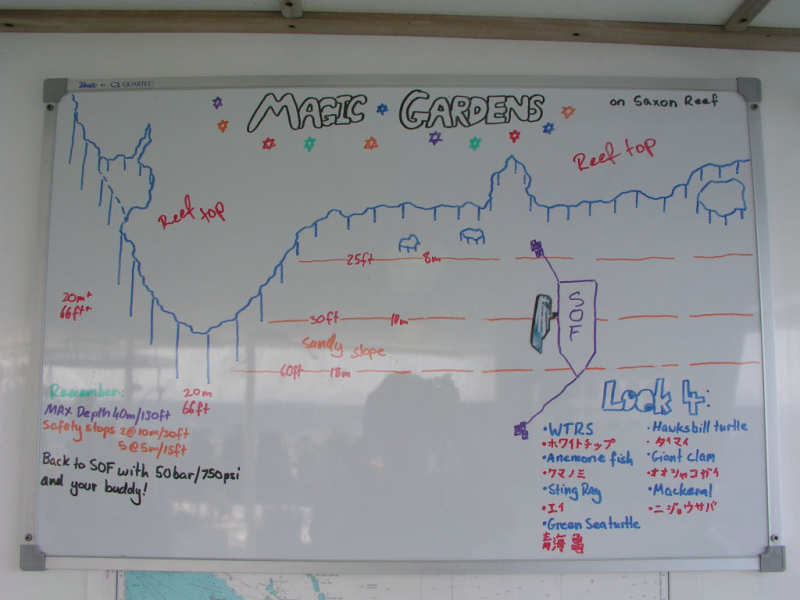 QUARTET
MAGIC GARDENS
on Saxon Reef
Reef top
Reef top
25ft 8m
20m+
66ft+
30ft 10m
SOF
Sandy slope
60ft 18m
20m
66ft
Remember:
MAX Depth 40m/130ft
Safety stops 2@10m/30ft
5@5m/15ft
Back to SOF with 50bar/750psi
and your buddy!
Look 4:
• WTRS
• ホワイトチップ
• Anemone fish
• クマノミ
• Sting Ray
• エイ
• Green Sea turtle
青海亀
• Hawksbill turtle
• タイマイ
• Giant clam
• オオシャコガイ
• Mackeral
• ニジョウサバ